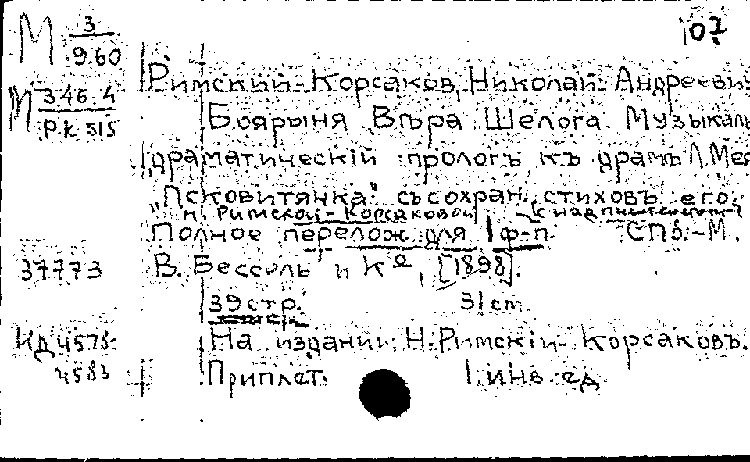 107
М 3/960
М 346.4/РК 515
Римский-Корсаков, Николай Андрееви
Боярыня Вѣра Шелога. Музыкаль
драматическій прологъ къ драмѣ Л. Мея
"Псковитянка" съ сохран. стиховъ его.
Н. Римской-Корсаковой
Полное перелож. для ф-п. СПб.-М.
37773 В. Бессель и Ко, [1898].
39 стр. 31 cm.
Ид 4578- На издании: Н. Римскій-Корсаковъ.
4583 Приплет. 1 инв. ед.